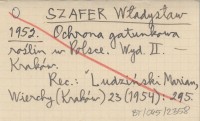 O SZAFER Władysław
1952. Ochrona gatunkowa
roślin w Polsce. Wyd. II. —
Kraków.
Rec.: Ludziński Marian,
Wierchy (Kraków) 23 (1954): 295.